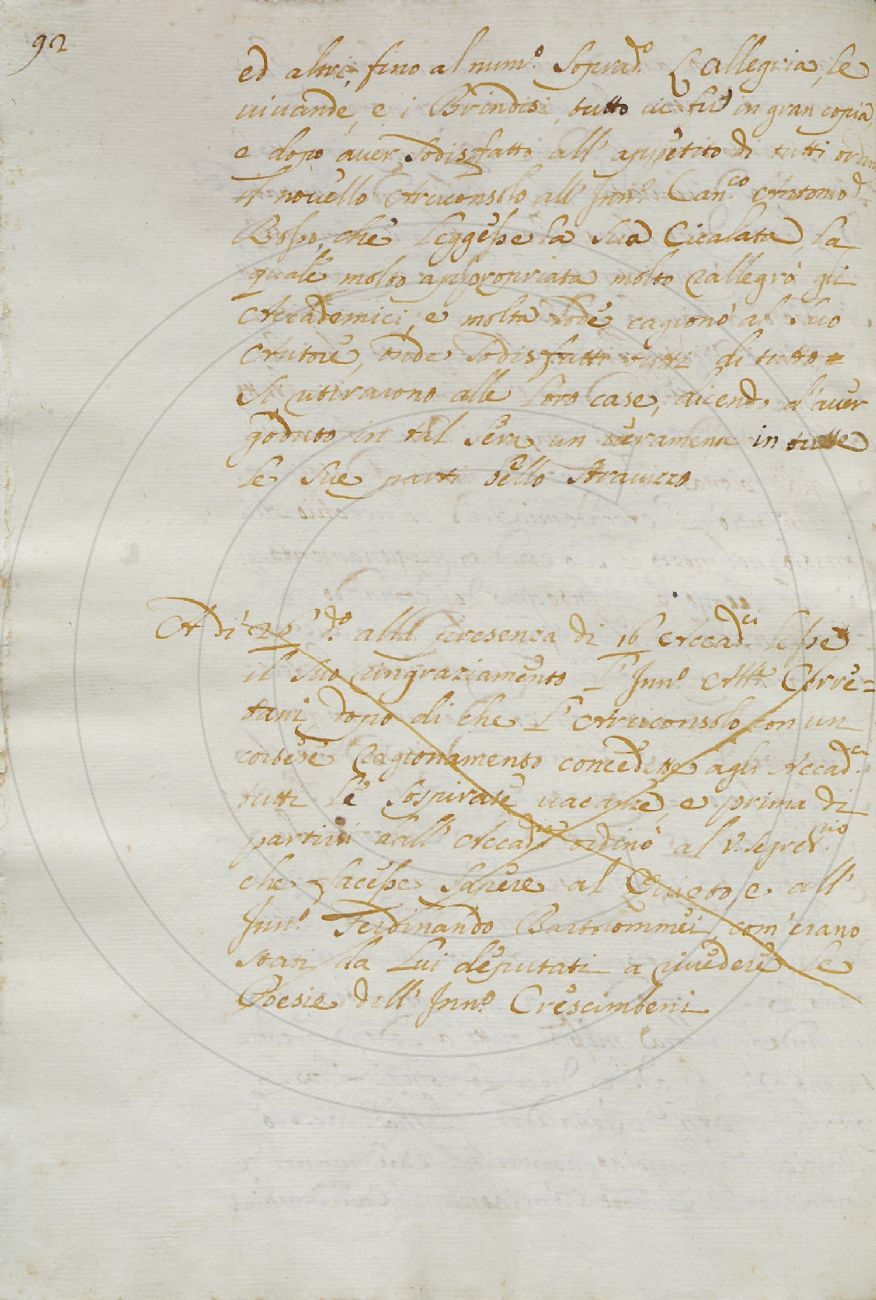 92
ed altri, fino al num.o Soprad.o L'allegria, le
vivande, e i Brindisi, tutto ciò fù in gran copia
e dopo aver sodisfatto all' appetito di tutti ordinò
Il novello Arciconsolo all' Inn.o Can.co Antonio d.
che leggesse la sua Cicalata, la
quale molto appropriata molto rallegrò gli
Accademici, e molta lode cagionò al suo
Autore, onde sodisfatti tutti di tutto =
si ritirarono alle loro case, dicendo d'aver
goduto in tal sera un veramente in tutte
le sue parti bello Stravizzo
A dì d.o alla presenza di 16 Accad.ci lesse
il suo ringraziamento l' Inn.o Cerre=
tani, dopo di che l'Arciconsolo con un
cortese ragionamento concedette agli Accad.ci
tutti le sospirate vacanze, e prima di
partirsi dall' Accad.a ordinò al V. Segret.rio
che facesse sapere al Divieto, e all'
Inn.o Ferdinando Bartolommei, com'erano
stati da Lui deputati a rivedere le
Poesie dell' Inn.o Crescimbeni